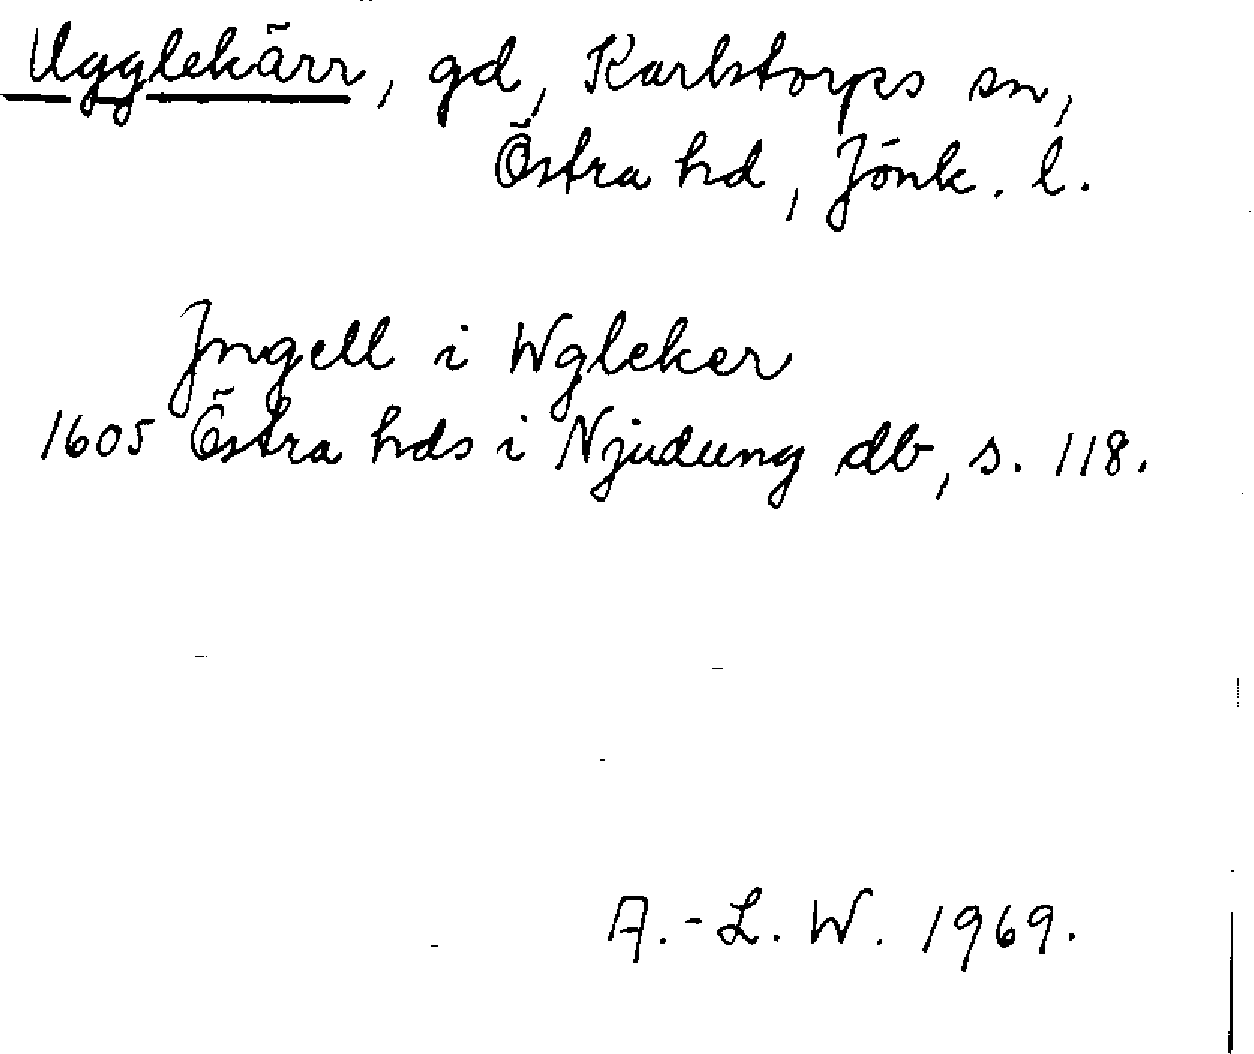 Ugglekärr, gd, Karlstorps sn,
Östra hd, Jönk. l.
Jngell i Wgleker
1605 Östra hds i Njudung db, s. 118.
A.-L. W. 1969.